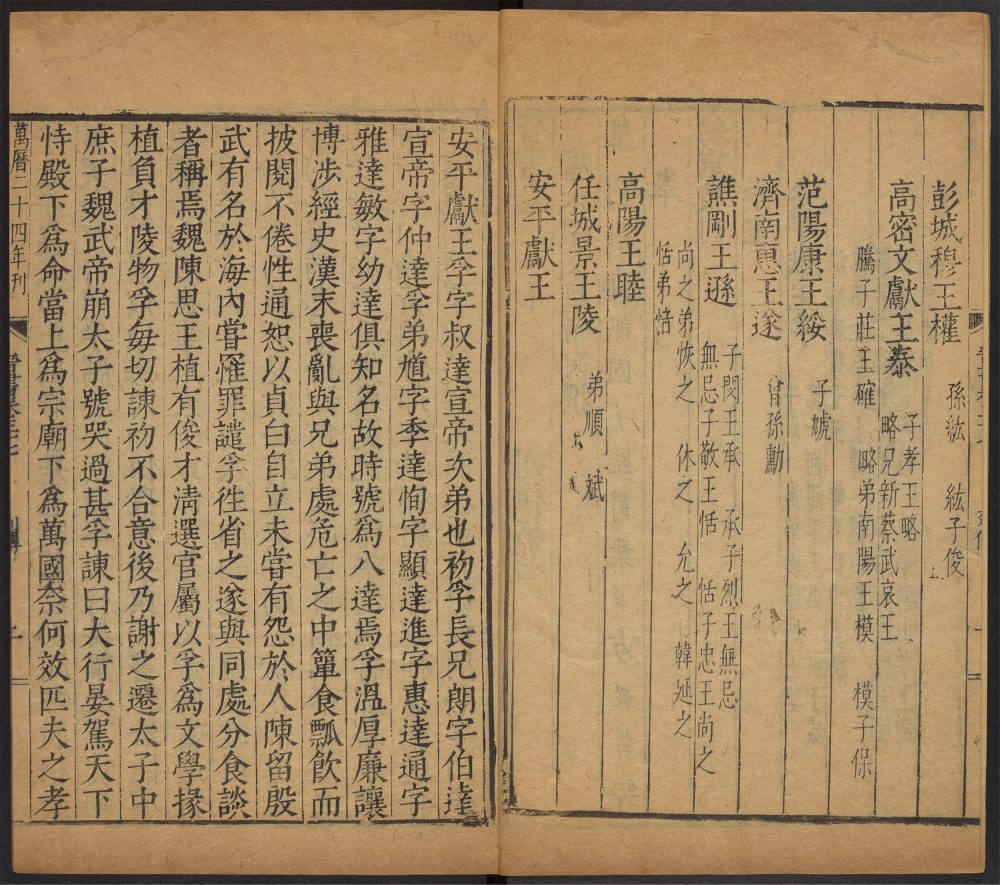 彭城穆王權 孫紘 紘子俊
高密文獻王泰 子孝王略
略兄新蔡武哀王
騰子莊王確 略弟南陽王模 模子保
范陽康王綏 子虓
濟南惠王遂 曾孫勳
譙剛王遜 子閔王承 承子烈王無忌
無忌子敬王恬 恬子忠王尚之
尚之弟恢之 休之 允之 韓延之
恬弟愔
高陽王睦
任城景王陵 弟順 斌
安平獻王
安平獻王孚字叔達宣帝次弟也初孚長兄朗字伯達
宣帝字仲達孚弟馗字季達恂字顯達進字惠達通字
雅達敏字幼達俱知名故時號爲八達焉孚溫厚廉讓
博涉經史漢末喪亂與兄弟處危亡之中簞食瓢飲而
披閱不倦性通恕以貞白自立未嘗有怨於人陳留殷
武有名於海內嘗罹罪譴孚徃省之遂與同處分食談
者稱焉魏陳思王植有俊才清選官屬以孚爲文學掾
植負才陵物孚每切諫初不合意後乃謝之遷太子中
庶子魏武帝崩太子號哭過甚孚諫曰大行晏駕天下
恃殿下爲命當上爲宗廟下爲萬國奈何效匹夫之孝
萬曆二十四年刊